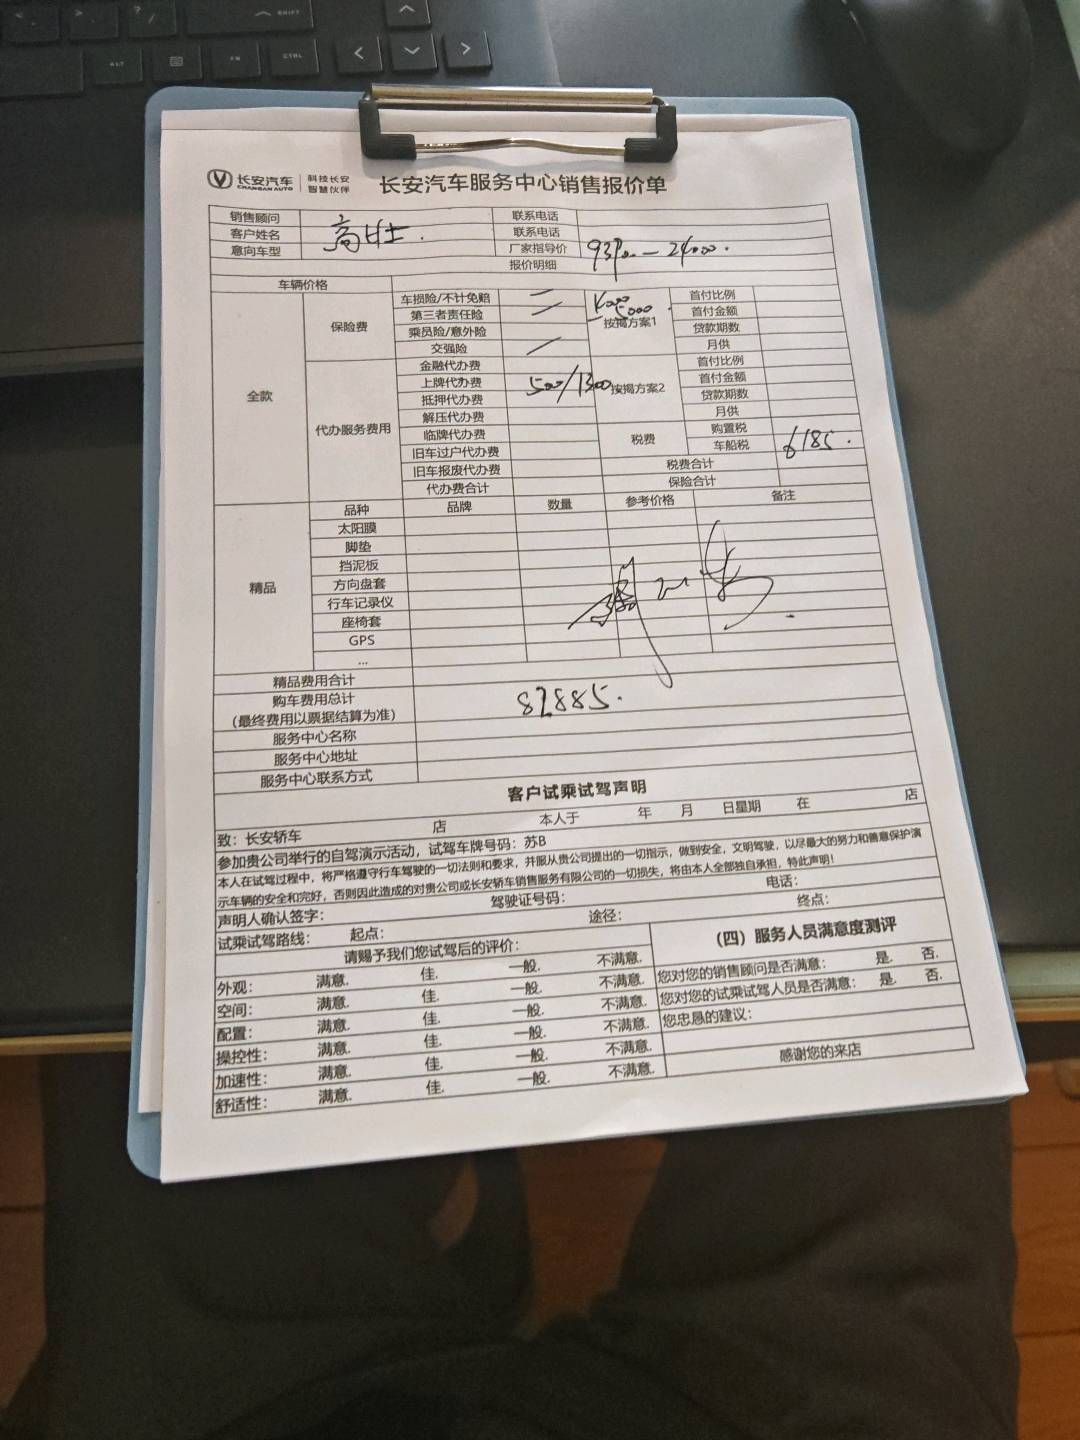 长安汽车 CHANGAN AUTO 科技长安 智慧伙伴 长安汽车服务中心销售报价单
销售顾问 联系电话
客户姓名 联系电话
意向车型 高 厂家指导价 93900 — 24000.
报价明细
车辆价格
全款 保险费 车损险/不计免赔 4000 首付比例
第三者责任险 5000 按揭方案1 首付金额
乘员险/意外险 贷款期数
交强险 月供
代办服务费用 金融代办费 首付比例
上牌代办费 500/1300 按揭方案2 首付金额
抵押代办费 贷款期数
解压代办费 月供
临牌代办费 税费 购置税
旧车过户代办费 车船税 6185.
旧车报废代办费 税费合计
代办费合计 保险合计
精品 品种 品牌 数量 参考价格 备注
太阳膜
脚垫
挡泥板
方向盘套
行车记录仪
座椅套
GPS
...
精品费用合计
购车费用总计
(最终费用以票据结算为准) 82885.
服务中心名称
服务中心地址
服务中心联系方式
客户试乘试驾声明
致：长安轿车 店 本人于 年 月 日星期 在 店
参加贵公司举行的自驾演示活动，试驾车牌号码：苏B
本人在试驾过程中，将严格遵守行车驾驶的一切法则和要求，并服从贵公司提出的一切指示，做到安全，文明驾驶，以尽最大的努力和善意保护演
示车辆的安全和完好，否则因此造成的对贵公司或长安轿车销售服务有限公司的一切损失，将由本人全部独自承担，特此声明！
声明人确认签字： 驾驶证号码： 电话：
试乘试驾路线： 起点： 途径： 终点：
请赐予我们您试驾后的评价： (四）服务人员满意度测评
外观： 满意. 佳. 一般. 不满意. 您对您的销售顾问是否满意： 是. 否.
空间： 满意. 佳. 一般. 不满意. 您对您的试乘试驾人员是否满意： 是. 否.
配置： 满意. 佳. 一般. 不满意. 您忠恳的建议：
操控性： 满意. 佳. 一般. 不满意.
加速性： 满意. 佳. 一般. 不满意. 感谢您的来店
舒适性： 满意. 佳. 一般. 不满意.